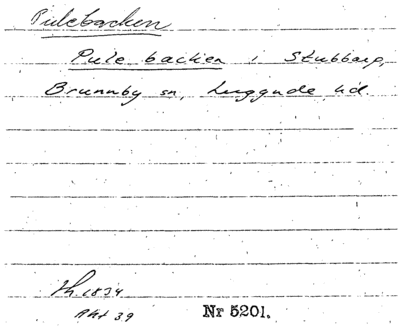 Pulebacken
Pule backen i Stubbarp,
Brunnby sn, Luggude hd.
Th. 1834
Akt 39
Nr 5201.